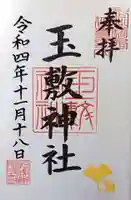 奉拝
玉敷神社
令和四年十一月十八日